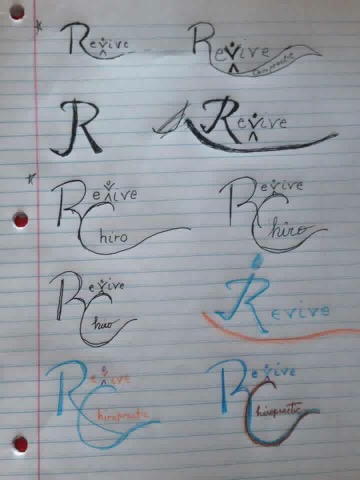 Revive
Revive
Chiropractic
R
Revive
Revive
Chiro
Revive
Chiro
Revive
Chiro
Revive
Revive
Chiropractic
Revive
Chiropractic